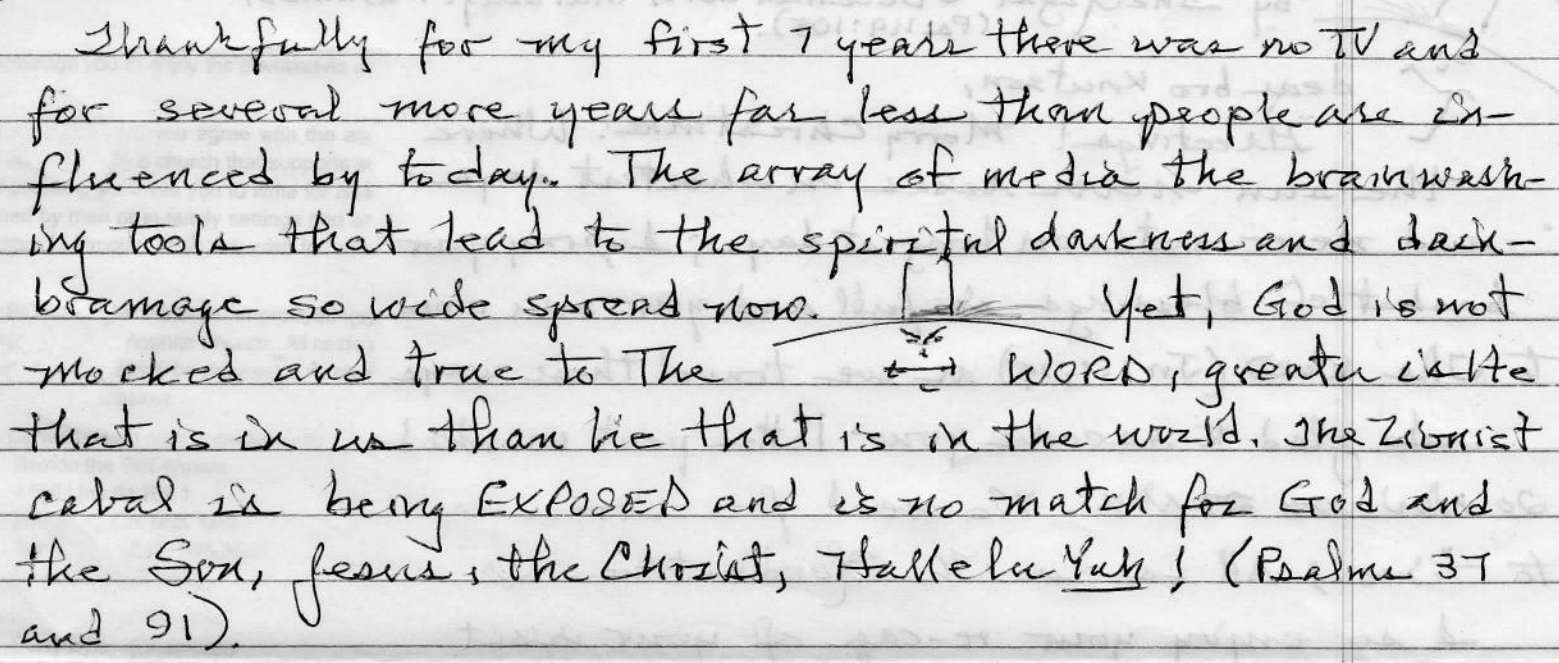 Thankfully for my first 7 years there was no TV and
for several more years far less than people are in-
fluenced by today. The array of media the brainwash-
ing tools that lead to the spiritul darkness and dain-
bramage so wide spread now. Yet, God is not
mocked and true to The WORD, greater is He
that is in us than he that is in the world. The Zionist
cabal is being EXPOSED and is no match for God and
the Son, Jesus, the Christ, HalleluYah! (Psalms 37
and 91).